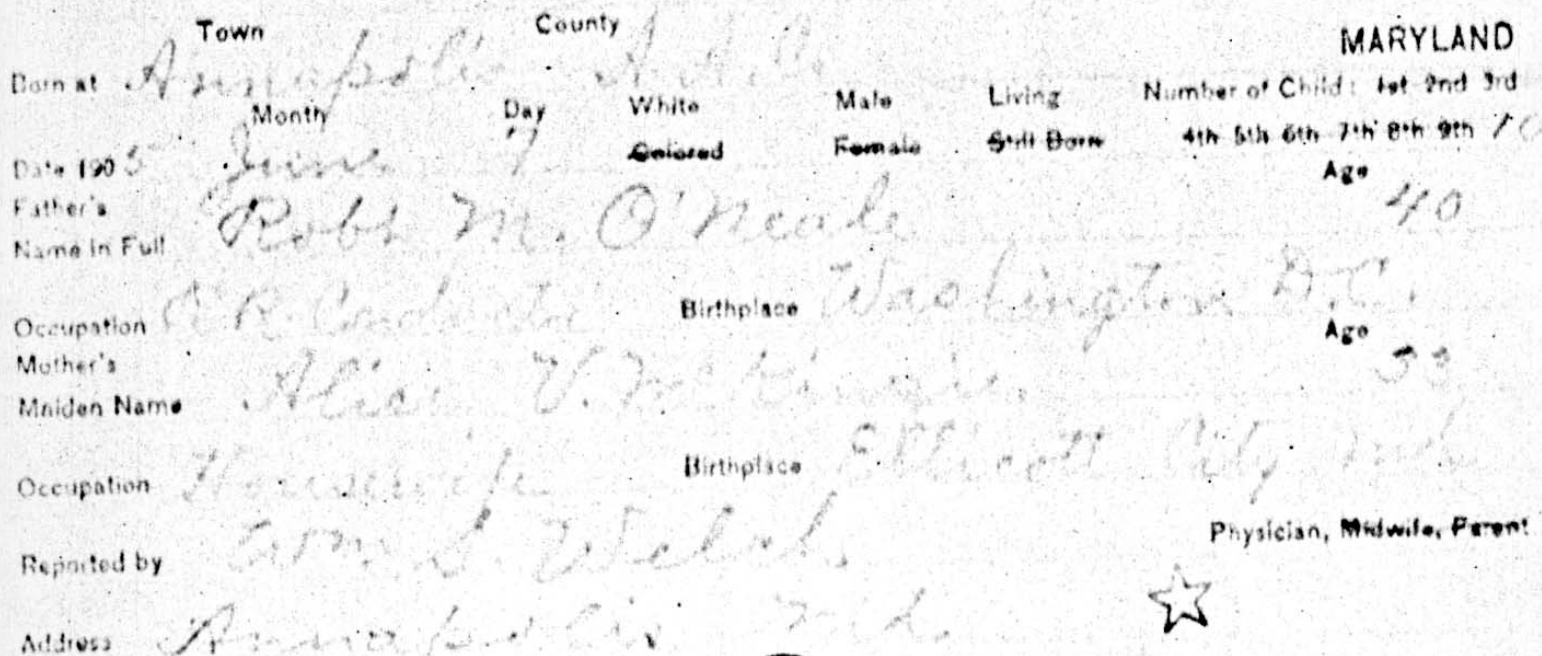 Town County MARYLAND
Born at Annapolis A. A. Co.
Month Day White Male Living Number of Child: 1st 2nd 3rd
Date 1905 June 7 Colored Female Still Born 4th 5th 6th 7th 8th 9th 10
Father's Age
Name in Full Robt M. O'Neale 40
Occupation R R Conductor Birthplace Washington D.C.
Mother's Age
Maiden Name Alice V. 33
Occupation Housewife Birthplace Ellicott City Md
Reported by Wm. S. Welch Physician, Midwife, Parent
Address Annapolis Md.